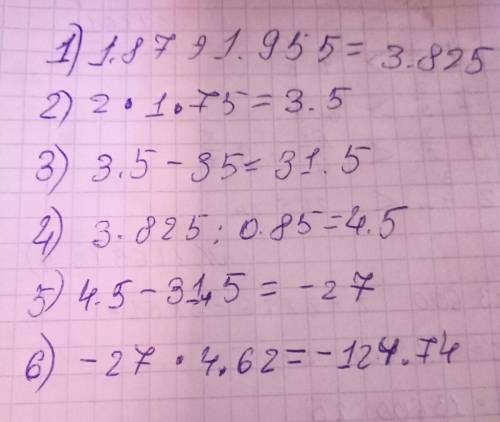 1) 1.87 + 1.955 = 3.825
2) 2 · 1.75 = 3.5
3) 3.5 - 35 = 31.5
4) 3.825 : 0.85 = 4.5
5) 4.5 - 31,5 = -27
6) -27 · 4.62 = -124.74